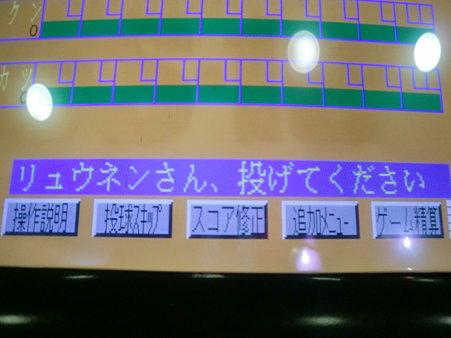 クン
0
カツ
リュウネンさん、投げてください
操作説明 投球スキップ スコア修正 追加メニュー ゲーム精算